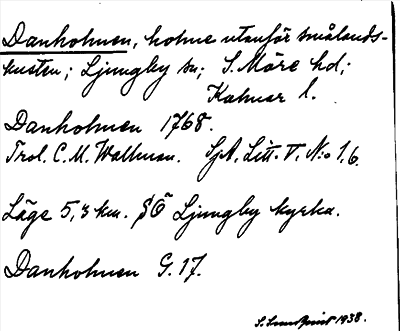 Danholmen, holme utanför smålands-
kusten; Ljungby sn; S. Möre hd;
Kalmar l.
Danholmen 1768.
Trol. C. M. Wallman. SjA. Litt. V. N:o 1,6.
Läge 5,3 km. SÖ Ljungby kyrka.
Danholmen G. 17.
S. Sundquist 1938.